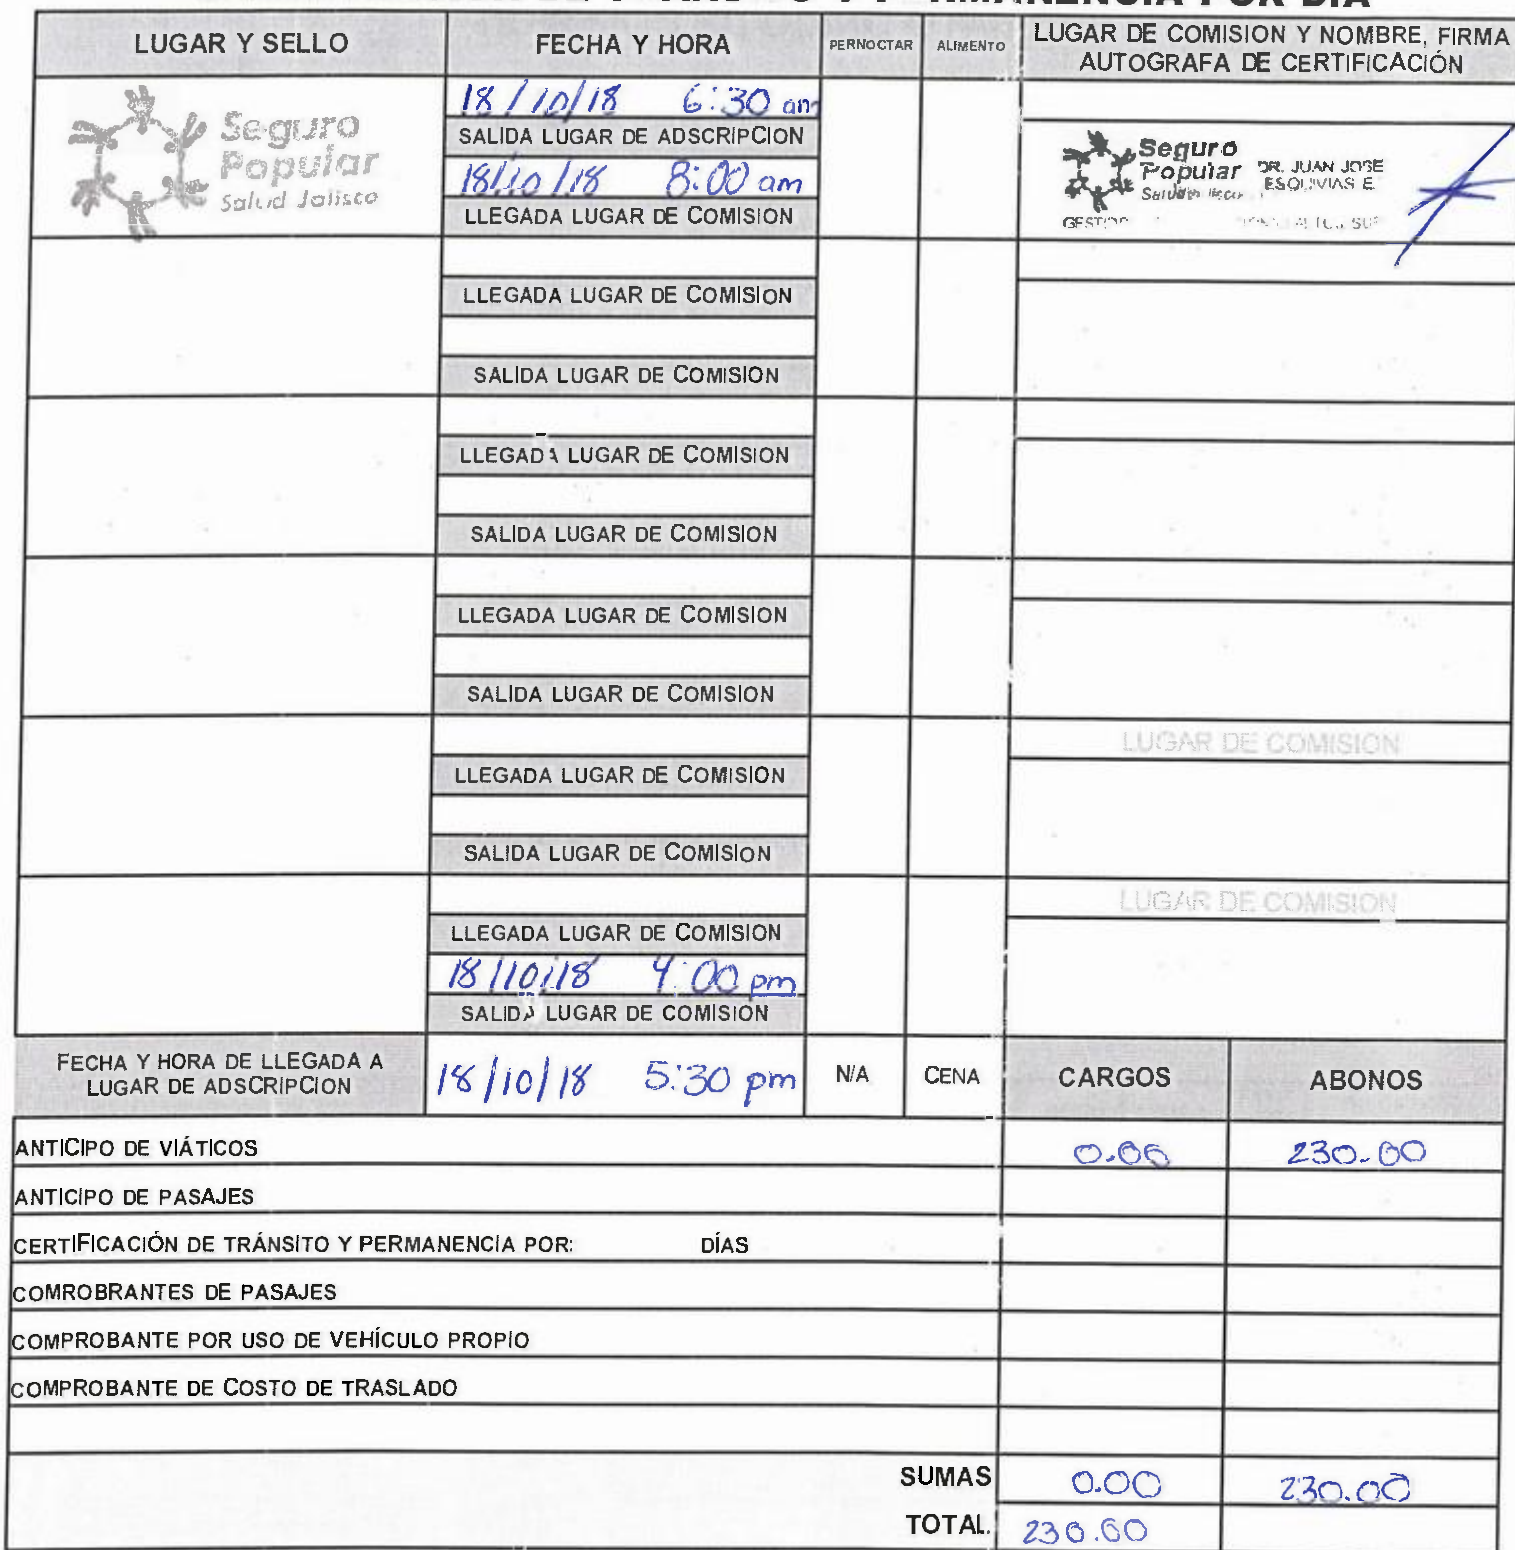 Y PERMANENCIA POR DIA
LUGAR Y SELLO FECHA Y HORA PERNOCTAR ALIMENTO LUGAR DE COMISION Y NOMBRE, FIRMA
AUTOGRAFA DE CERTIFICACIÓN
Seguro
Popular
Salud Jalisco
18/10/18 6:30 am
SALIDA LUGAR DE ADSCRIPCION
18/10/18 8:00 am
LLEGADA LUGAR DE COMISION
Seguro
Popular DR. JUAN JOSE
ESQUIVIAS E
LLEGADA LUGAR DE COMISION
SALIDA LUGAR DE COMISION
LLEGADA LUGAR DE COMISION
SALIDA LUGAR DE COMISION
LLEGADA LUGAR DE COMISION
SALIDA LUGAR DE COMISION
LUGAR DE COMISION
LLEGADA LUGAR DE COMISION
SALIDA LUGAR DE COMISION
LUGAR DE COMISION
LLEGADA LUGAR DE COMISION
18/10/18 4:00 pm
SALIDA LUGAR DE COMISION
FECHA Y HORA DE LLEGADA A
LUGAR DE ADSCRIPCION 18/10/18 5:30 pm N/A CENA CARGOS ABONOS
ANTICIPO DE VIÁTICOS 0.00 230.00
ANTICIPO DE PASAJES
CERTIFICACIÓN DE TRÁNSITO Y PERMANENCIA POR: DÍAS
COMROBRANTES DE PASAJES
COMPROBANTE POR USO DE VEHÍCULO PROPIO
COMPROBANTE DE COSTO DE TRASLADO
SUMAS 0.00 230.00
TOTAL. 230.00